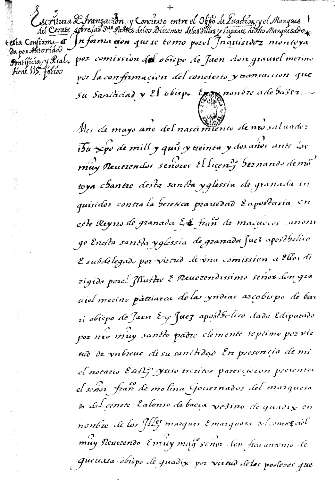 +
Escriptura de transaççion y Concierto entre el Obpo de Guadix y el Marques
del Cenete sobre los Diezmos dho Marquesado
esta Confirma
da por Authoridad
Pontificia, y Real.
Informacion que se tomo por el Inquisidor montoya
por comission del obispo de Jaen don grauiel merino
por la confirmacion del concierto y transaction que
su santidad y El obispo en su nonbre a de hazer
de mayo año del nascimiento de nro saluador
ihu xpo de mill y quis y treinta y dos años ante los
muy Reuerendos señores el licendo hernando de mon
toya chantre desta sancta yglesia de granada in
quisidor contra la heretica prauedad E apostasia en
este Reyno de granada E fran de marquecos canoni
go En esta sancta yglesia de granada Juez apostholico
E subdelegado por virtud de una comission a Ellos di
rigida por el Illustre E Reuerendissimo señor don gra
uiel merino patriarca de las yndias arçobispo de ba
ri obispo de Jaen E Juez apostholico dado E diputado
por nro muy sancto padre clemente septimo por vir
tud de un breue de su santidad En presencia de mi
el notario E testigos yuso escritos parescieron presentes
el señor fran de molina Gouernador del marquesa
do del cenete E alonso de baeça vezino de guadix en
nonbre de los Illes marques E marquesa del cenete del
muy Reuerendo E muy magco señor don
gueuara obispo de guadix por virtud de los poderes que